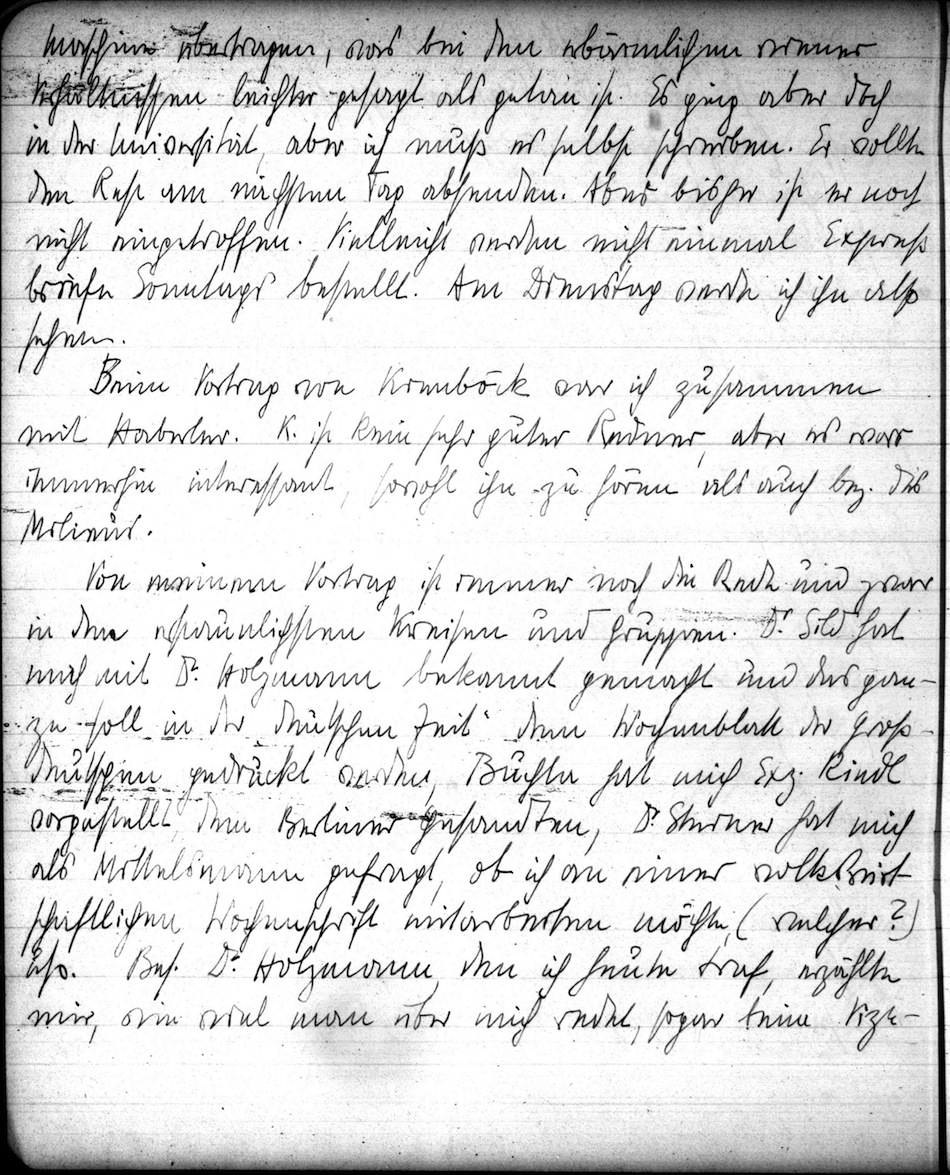 Maschine übertragen, was bei den erbärmlichen wiener
Verhältnissen leichter gesagt als getan ist. Es ging aber doch
in der Universität, aber ich muß es selbst schreiben. Er wollte
den Rest am nächsten Tag absenden. Aber bisher ist er noch
nicht eingetroffen. Vielleicht werden nicht einmal Expreß
briefe Sonntags bestellt. Am Dienstag werde ich ihn also
sehen.
Beim Vortrag von Krumböck war ich zusammen
mit Haberler. K. ist kein sehr guter Redner, aber es war
immerhin interessant, sowohl ihn zu hören als auch bez. des
Milieus.
Von meinem Vortrag ist immer noch die Rede und zwar
in den erstaunlichsten Kreisen und Gruppen. Dr. Sild hat
mich mit Dr. Holzmann bekannt gemacht und das gan-
ze soll in der „deutschen Zeit" dem Wochenblatt der Groß-
deutschen gedruckt werden, Buchta hat mich Exz. Riedl
vorgestellt, dem Berliner Gesandten, Dr. Sterner hat mich
als Mittelsmann gefragt, ob ich an einer volkswirt
schaftlichen Wochenschrift mitarbeiten möchte, (welcher?)
usf. Bes. Dr. Holzmann, den ich heute traf, erzählte
mir, wie viel man über mich redet, sogar seine Vize-